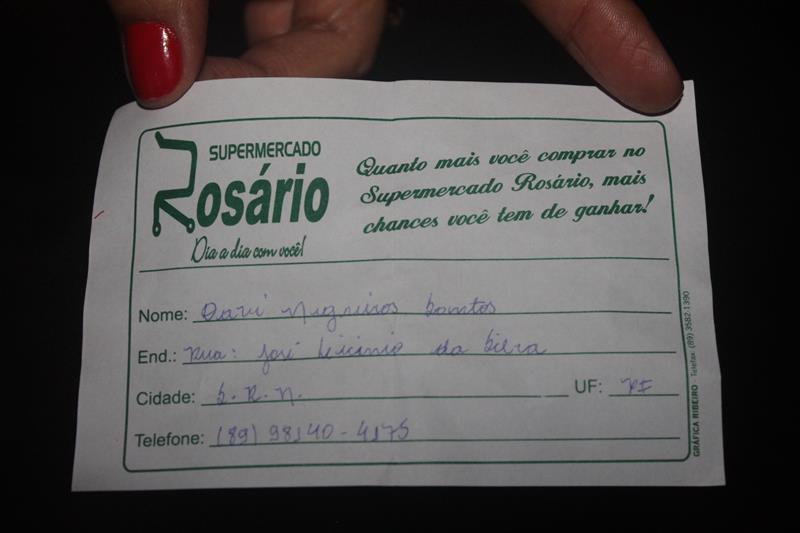 SUPERMERCADO
Rosário
Dia a dia com você!
Quanto mais você comprar no
Supermercado Rosário, mais
chances você tem de ganhar!
Nome: Davi Negreiros Santos
End.: Rua: José Licinio da Silva
Cidade: S. R. N. UF: PI
Telefone: (89) 98140-4175
GRÁFICA RIBEIRO - Telefax: (89) 3582-1390